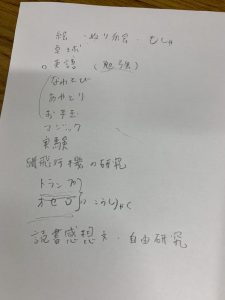 絵・ぬり絵・むしゃ
卓球
英語(勉強)
なわとび
あやとり
お手玉
マジック
実験
紙飛行機の研究
トランプ
オセロ
読書感想文・自由研究